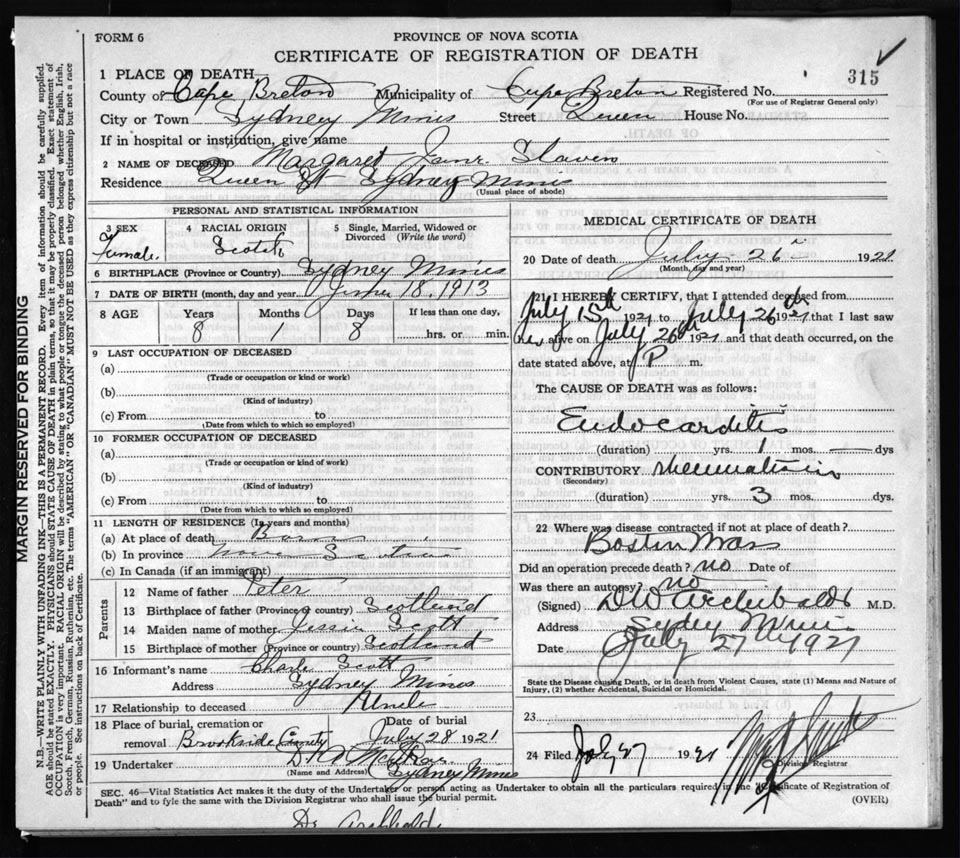 FORM 6
PROVINCE OF NOVA SCOTIA
CERTIFICATE OF REGISTRATION OF DEATH
315
1 PLACE OF DEATH
County of Cape Breton Municipality of Cape Breton Registered No.
(For use of Registrar General only)
City or Town Sydney Mines Street Queen House No.
If in hospital or institution, give name
2 NAME OF DECEASED Margaret Jane Slaven
Residence Queen St Sydney Mines
(Usual place of abode)
PERSONAL AND STATISTICAL INFORMATION
3 SEX Female
4 RACIAL ORIGIN Scotch
5 Single, Married, Widowed or Divorced (Write the word)
6 BIRTHPLACE (Province or Country) Sydney Mines
7 DATE OF BIRTH (month, day and year) 18, 1913
8 AGE Years Months Days If less than one day,
8 1 8 hrs. or min.
9 LAST OCCUPATION OF DECEASED
(a)
(Trade or occupation or kind or work)
(b)
(Kind of industry)
(c) From to
(Date from which to which so employed)
10 FORMER OCCUPATION OF DECEASED
(a)
(Trade or occupation or kind of work)
(b)
(Kind of industry)
(c) From to
(Date from which to which so employed)
11 LENGTH OF RESIDENCE (In years and months)
(a) At place of death Born
(b) In province Nova Scotia
(c) In Canada (if an immigrant)
Parents
12 Name of father Peter
13 Birthplace of father (Province or country) Scotland
14 Maiden name of mother Jessie Scott
15 Birthplace of mother (Province or country) Scotland
16 Informant's name Charle Scott
Address Sydney Mines
17 Relationship to deceased Uncle
18 Place of burial, cremation or removal Brookside Date of burial July 28 1921
19 Undertaker
(Name and Address) Sydney Mines
MEDICAL CERTIFICATE OF DEATH
20 Date of death July 26 1921
(Month, day and year)
21 I HEREBY CERTIFY, that I attended deceased from
July 15th 1921 to July 26th 1921 that I last saw
her alive on July 26th 1921 and that death occurred, on the
date stated above, at P m.
The CAUSE OF DEATH was as follows:
Endocarditis
(duration) yrs. 1 mos. dys
CONTRIBUTORY rheumatism
(Secondary)
(duration) yrs. 3 mos. dys.
22 Where was disease contracted if not at place of death?
Boston Mass
Did an operation precede death? no Date of
Was there an autopsy? no
(Signed) DW Archibald M.D.
Address Sydney Mines
Date July 27 1921
State the Disease causing Death, or in death from Violent Causes, state (1) Means and Nature of
Injury, (2) whether Accidental, Suicidal or Homicidal.
23
24 Filed July 27 1921
Division Registrar
SEC. 46—Vital Statistics Act makes it the duty of the Undertaker or person acting as Undertaker to obtain all the particulars required in the "Certificate of Registration of
Death" and to fyle the same with the Division Registrar who shall issue the burial permit.
(OVER)
Dr Archibald
MARGIN RESERVED FOR BINDING
N.B.—WRITE PLAINLY WITH UNFADING INK—THIS IS A PERMANENT RECORD. Every item of information should be carefully supplied.
AGE should be stated EXACTLY. PHYSICIANS should STATE CAUSE OF DEATH in plain terms, so that it may be properly classified. Exact statement of
OCCUPATION is very important. RACIAL ORIGIN will be described by stating to what people or tongue the deceased person belonged whether English, Irish,
Scotch, French, German, Russian, Ruthenian, etc. The terms "AMERICAN" OR "CANADIAN" MUST NOT BE USED as they express citizenship but not a race
or people. See instructions on back of Certificate.